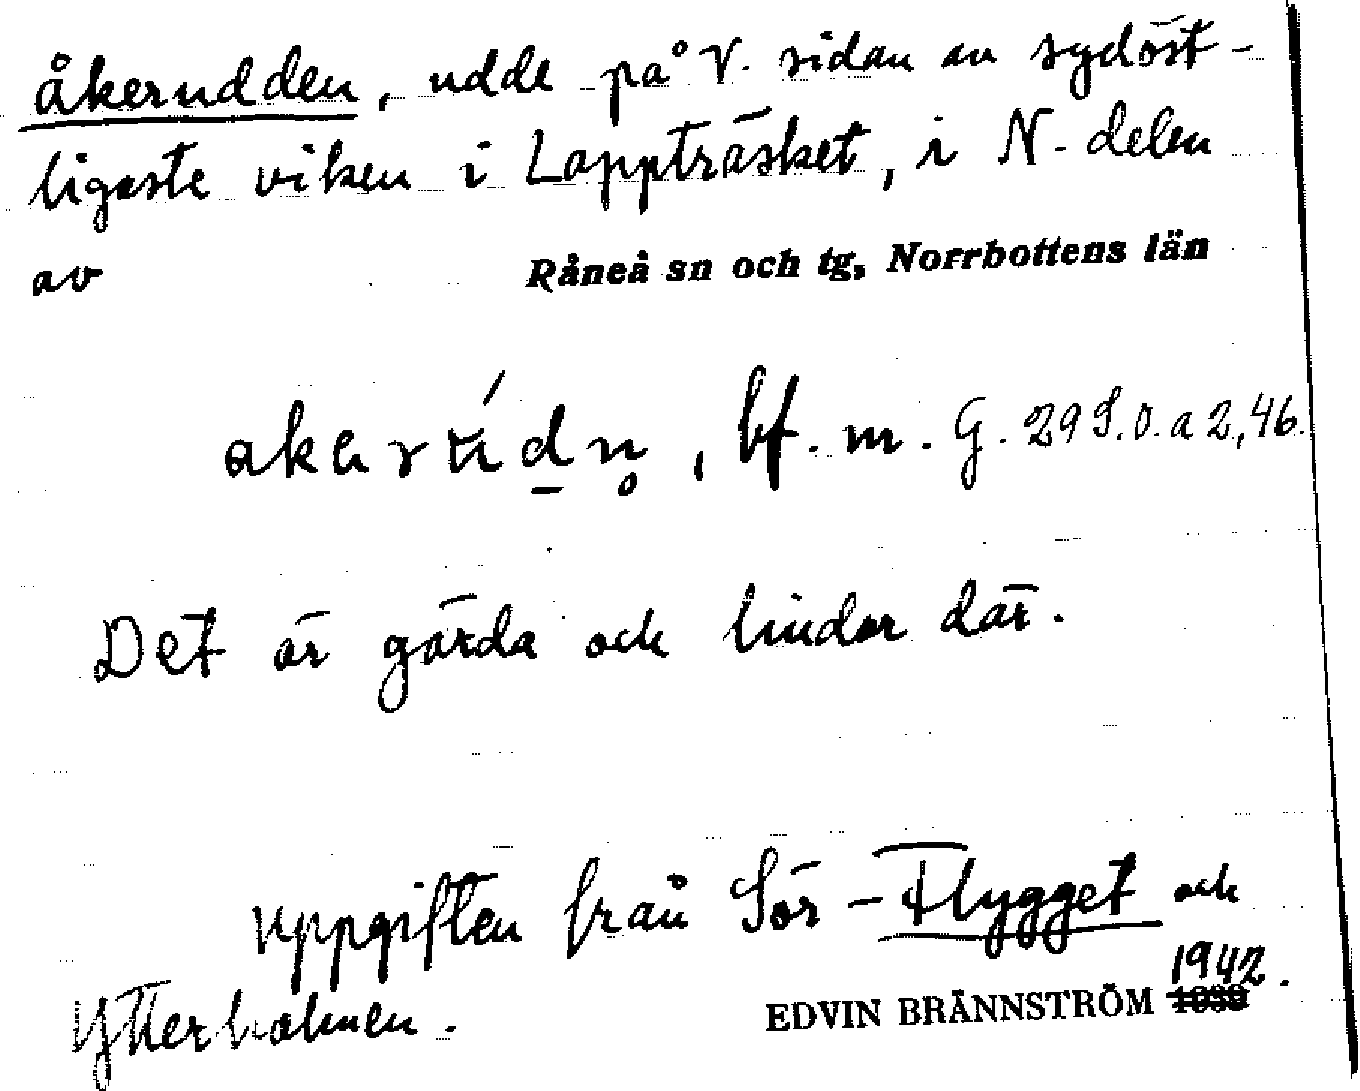 åkerudden, udde på V. sidan av sydöst-
ligaste viken i Lappträsket, i N. delen
av Råneå sn och tg, Norrbottens län
, bf. m. G. 29 S.O. a 2,46.
Det är gärda och lindor där.
Uppgiften från Sör-Flygget och
Ytterholmen. EDVIN BRÄNNSTRÖM 1942.